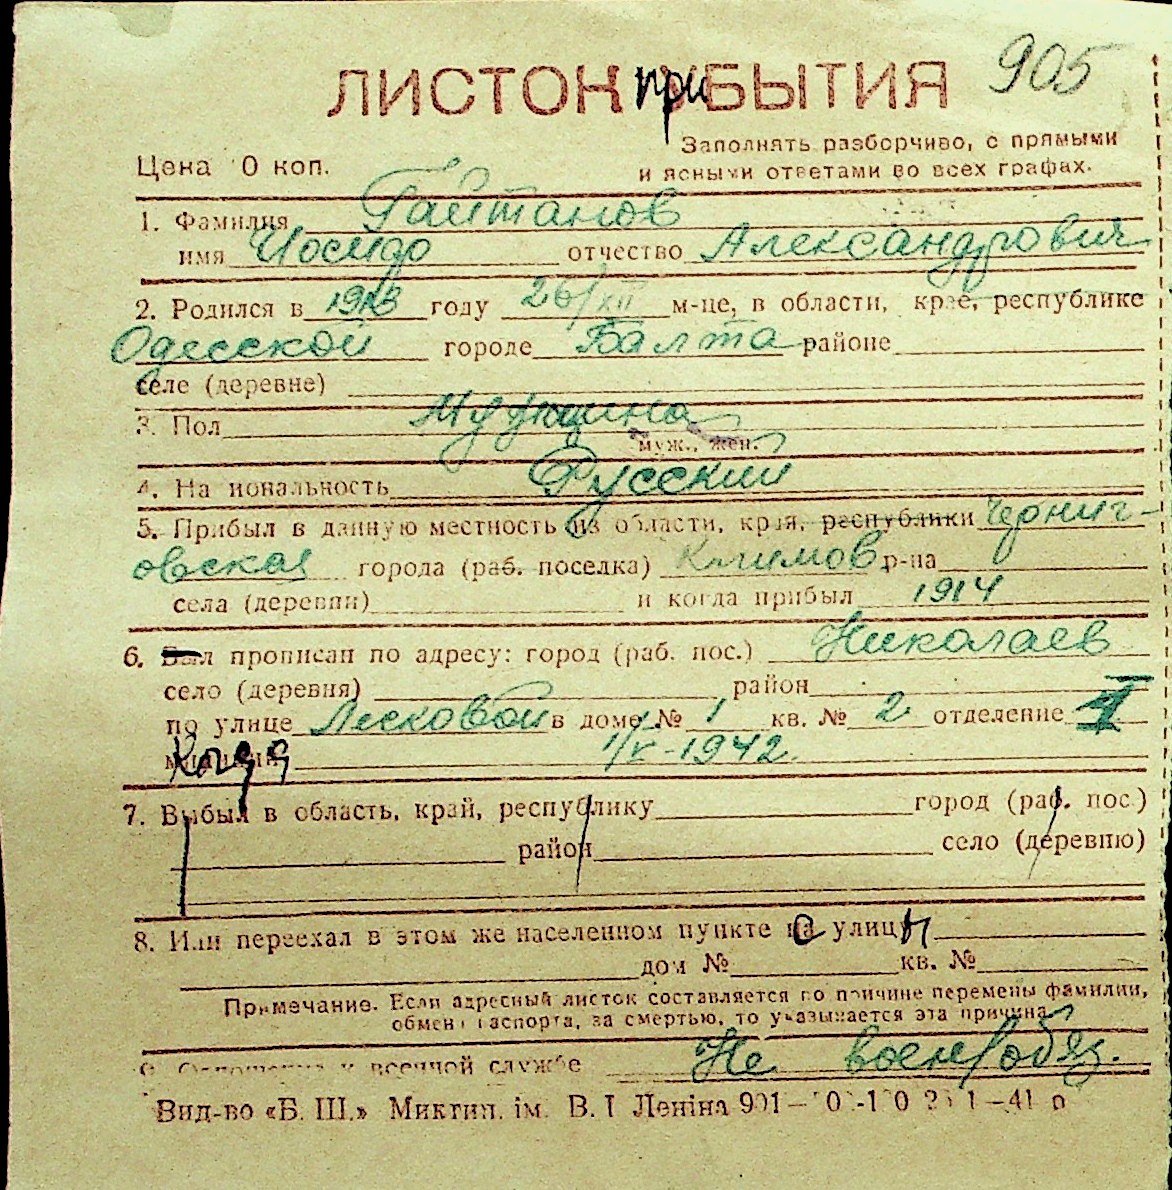 905
ЛИСТОК приБЫТИЯ
Заполнять разборчиво, с прямыми
Цена 10 коп. и ясными ответами во всех графах.
1. Фамилия Гайтанов
имя Иосиф отчество Александрович
2. Родился в 1913 году 26/XII м-це, в области, крае, республике
Одесской городе Балта районе
селе (деревне)
3. Пол Мужчина
муж., жен.
4. Национальность Русский
5. Прибыл в данную местность из области, края, республики Черниг-
овская города (раб. поселка) Климов р-на
села (деревни) и когда прибыл 1914
6. Был прописан по адресу: город (раб. пос.) Николаев
село (деревня) район
по улице Лесковой в доме № 1 кв. № 2 отделение
Когда 1/V-1942.
7. Выбыл в область, край, республику город (раб. пос.)
район село (деревню)
8. Или переехал в этом же населенном пункте с улицы
дом № кв. №
Примечание. Если адресный листок составляется по причине перемены фамилии,
обмена паспорта, за смертью, то указывается эта причина.
9. Отношение к военной службе Не военнобяз.
Вид-во «Б. Ш.» Миктип. ім. В. І. Леніна